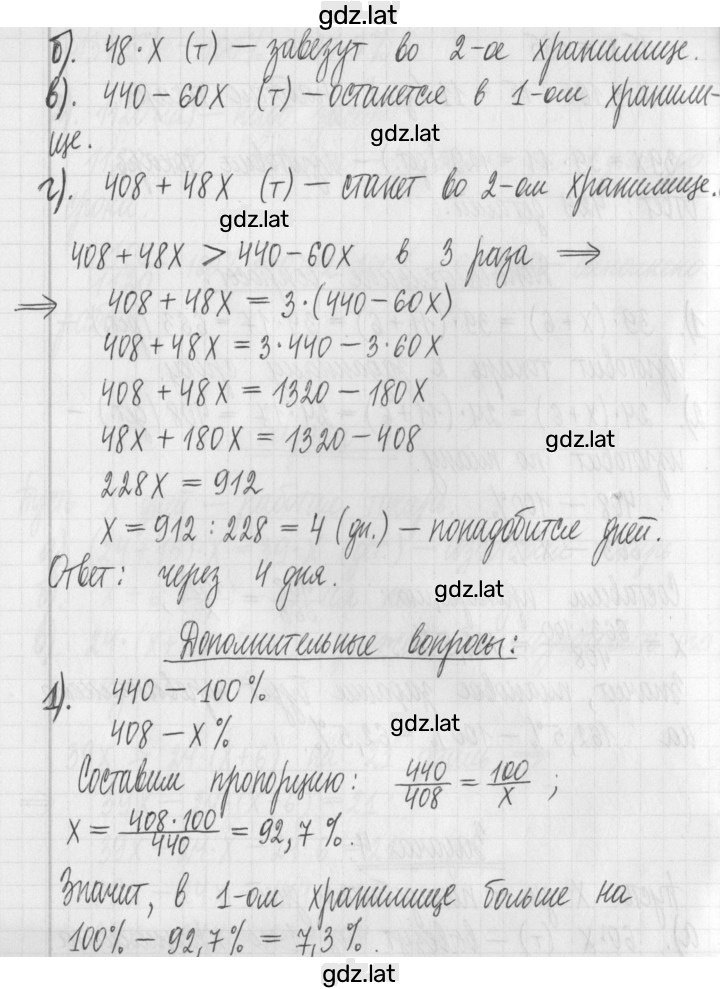 gdz.lat
б). 48·x (т) – завезут во 2-ое хранилище.
в). 440–60x (т) – останется в 1-ом хранили-
ще.
gdz.lat
г). 408+48x (т) – станет во 2-ом хранилище.
gdz.lat
408+48x > 440–60x в 3 раза ⇒
⇒ 408+48x = 3·(440–60x)
408+48x = 3·440–3·60x
408+48x = 1320–180x
48x+180x = 1320–408
gdz.lat
228x = 912
x = 912 : 228 = 4 (дн.) – понадобится дней.
Ответ: через 4 дня.
gdz.lat
Дополнительные вопросы:
1). 440 – 100%
408 – x%
gdz.lat
Составим пропорцию: 440/408 = 100/x ;
x = 408·100/440 = 92,7%.
Значит, в 1-ом хранилище больше на
100% – 92,7% = 7,3%.
gdz.lat